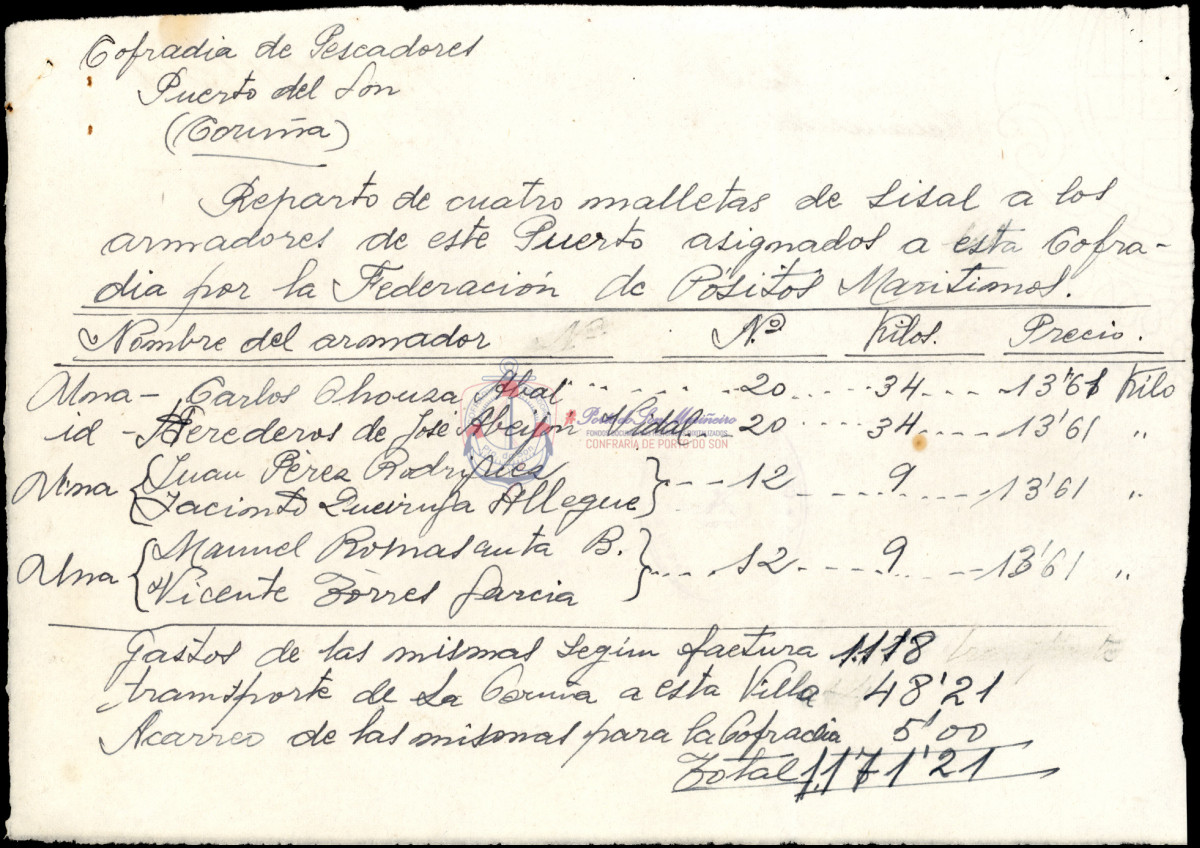 Cofradia de Pescadores
Puerto del Son
(Coruña)
Reparto de cuatro malletas de sisal a los
armadores de este Puerto asignados a esta Cofra-
dia por la Federación de Pósitos Maritimos.
Nombre del armador Nº Nº Kilos. Precio.
Una - Carlos Chouza Abal 20 34 13'61 Kilo
id - Herederos de José Abeijon 20 34 13'61 "
Una { Juan Pérez Rodriguez
Jacinto Queiruga Allegue } 12 9 13'61 "
Una { Manuel Romasanta B.
Vicente Torres Garcia } 12 9 13'61 "
Gastos de las mismas según factura 1.118
" transporte de La Coruña a esta Villa 48'21
Acarreo de las mismas para la Cofradia 5'00
Total 1.171'21
Porto do Son Mariñeiro
CONFRARÍA DE PORTO DO SON